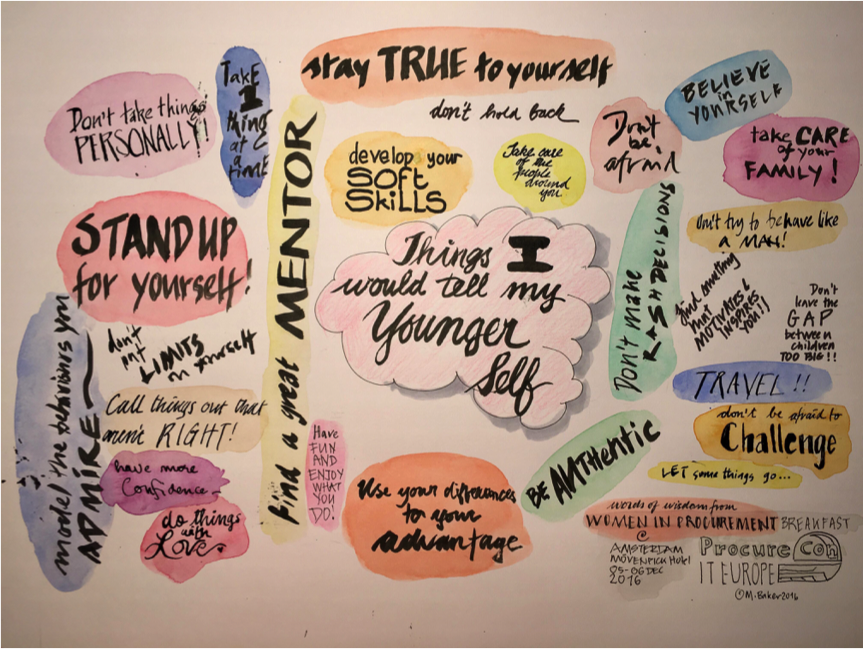 stay TRUE to yourself
don't hold back
Don't take things
PERSONALLY!
Take
1
thing
at
a
time
BELIEVE
in
YOURSELF
Don't
be
afraid
take CARE
of your
FAMILY!
develop your
SOFT
SKILLS
Take care
of the
people
around
you
find a great MENTOR
STAND UP
for yourself!
Things I
would tell my
Younger
Self
Don't make
RASH DECISIONS
don't try to behave like
a MAN!
find something
that
MOTIVATES &
INSPIRES
YOU!!
Don't
leave the
GAP
between
children
TOO BIG!!
don't
put
LIMITS
on yourself
model the behaviours you
ADMIRE
TRAVEL!!
Call things out that
aren't RIGHT!
don't be afraid to
Challenge
have more
Confidence
Have
FUN
AND
ENJOY
WHAT
YOU
DO!
BE AUTHENTIC
LET some things go...
do things
with
Love.
Use your differences
to your
advantage
words of wisdom from
WOMEN IN PROCUREMENT BREAKFAST
@
AMSTERDAM
MÖVENPICK Hotel
05-06 DEC
2016
ProcureCon
IT EUROPE
©M.Baker2016